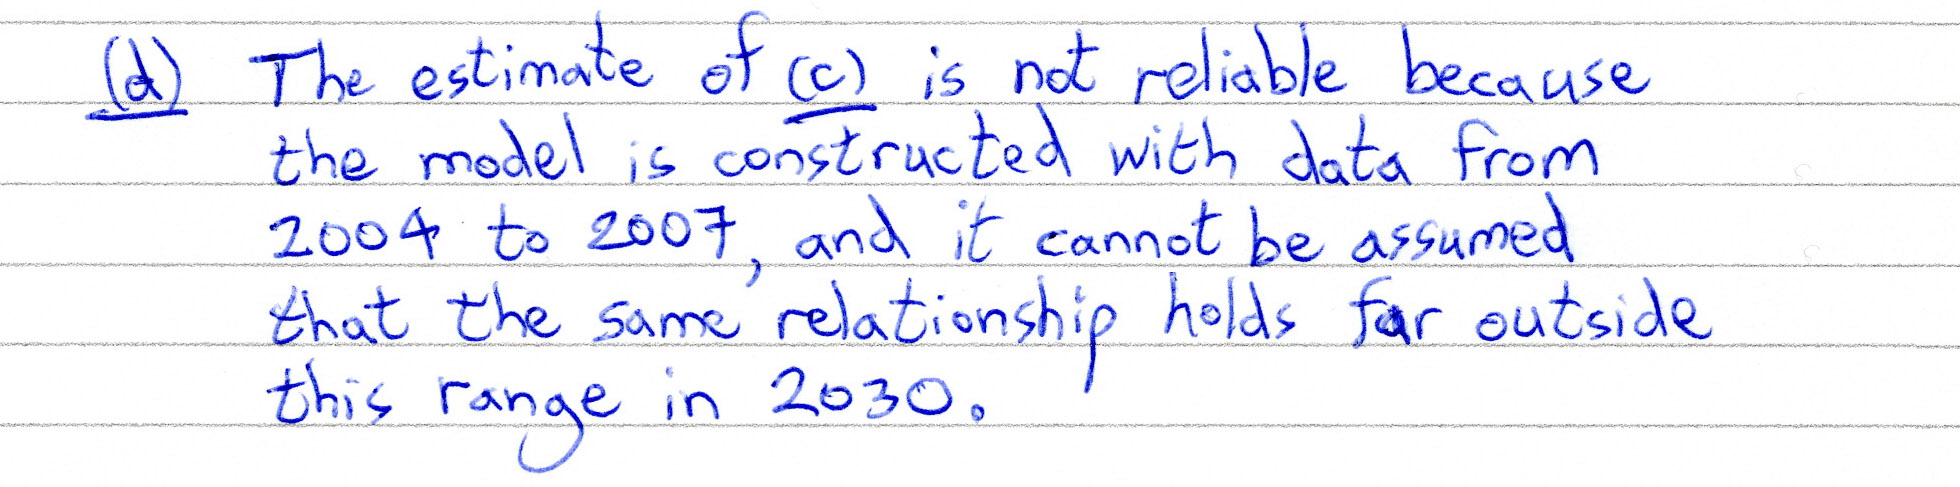 (d) The estimate of (c) is not reliable because
the model is constructed with data from
2004 to 2007, and it cannot be assumed
that the same relationship holds far outside
this range in 2030.